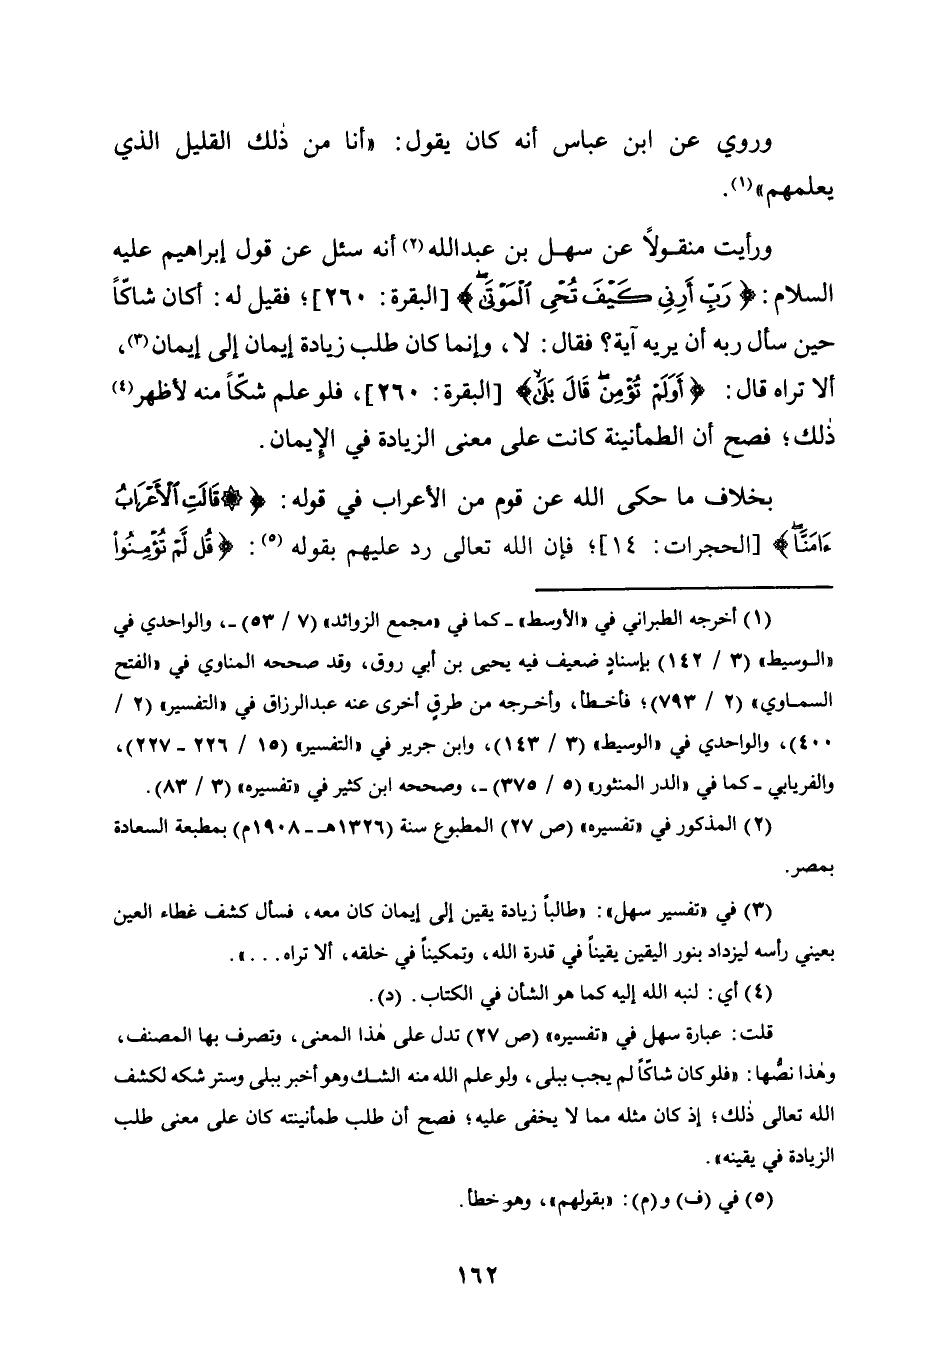 وروي عن ابن عباس أنه كان يقول: «أنا من ذٰلك القليل الذي
يعلمهم»(١).
ورأيت منقولاً عن سهل بن عبدالله(٢) أنه سئل عن قول إبراهيم عليه
السلام: ﴿رَبِّ أَرِنِي كَيْفَ تُحْيِ ٱلْمَوْتَىٰۖ﴾ [البقرة: ٢٦٠]؛ فقيل له: أكان شاكّاً
حين سأل ربه أن يريه آية؟ فقال: لا، وإنما كان طلب زيادة إيمان إلى إيمان(٣)،
ألا تراه قال: ﴿أَوَلَمْ تُؤْمِنۖ قَالَ بَلَىٰ﴾ [البقرة: ٢٦٠]، فلو علم شكّاً منه لأظهر(٤)
ذٰلك؛ فصح أن الطمأنينة كانت على معنى الزيادة في الإيمان.
بخلاف ما حكى الله عن قوم من الأعراب في قوله: ﴿۞قَالَتِ ٱلْأَعْرَابُ
ءَامَنَّاۖ﴾ [الحجرات: ١٤]؛ فإن الله تعالى رد عليهم بقوله(٥): ﴿قُل لَّمْ تُؤْمِنُوا۟
(١) أخرجه الطبراني في «الأوسط» ـ كما في «مجمع الزوائد» (٧ / ٥٣) ـ، والواحدي في
«الوسيط» (٣ / ١٤٢) بإسنادٍ ضعيف فيه يحيى بن أبي روق، وقد صححه المناوي في «الفتح
السماوي» (٢ / ٧٩٣)؛ فأخطأ، وأخرجه من طرقٍ أخرى عنه عبدالرزاق في «التفسير» (٢ /
٤٠٠)، والواحدي في «الوسيط» (٣ / ١٤٣)، وابن جرير في «التفسير» (١٥ / ٢٢٦ ـ ٢٢٧)،
والفريابي ـ كما في «الدر المنثور» (٥ / ٣٧٥) ـ، وصححه ابن كثير في «تفسيره» (٣ / ٨٣).
(٢) المذكور في «تفسيره» (ص ٢٧) المطبوع سنة (١٣٢٦هـ ـ ١٩٠٨م) بمطبعة السعادة
بمصر.
(٣) في «تفسير سهل»: «طالباً زيادة يقين إلى إيمان كان معه، فسأل كشف غطاء العين
بعيني رأسه ليزداد بنور اليقين يقيناً في قدرة الله، وتمكيناً في خلقه، ألا تراه...».
(٤) أي: لنبه الله إليه كما هو الشأن في الكتاب. (د).
قلت: عبارة سهل في «تفسيره» (ص ٢٧) تدل على هٰذا المعنى، وتصرف بها المصنف،
وهٰذا نصُّها: «فلو كان شاكّاً لم يجب ببلى، ولو علم الله منه الشك وهو أخبر ببلى وستر شكه لكشف
الله تعالى ذٰلك؛ إذ كان مثله مما لا يخفى عليه؛ فصح أن طلب طمأنينته كان على معنى طلب
الزيادة في يقينه».
(٥) في (ف) و(م): «بقولهم»، وهو خطأ.
١٦٢